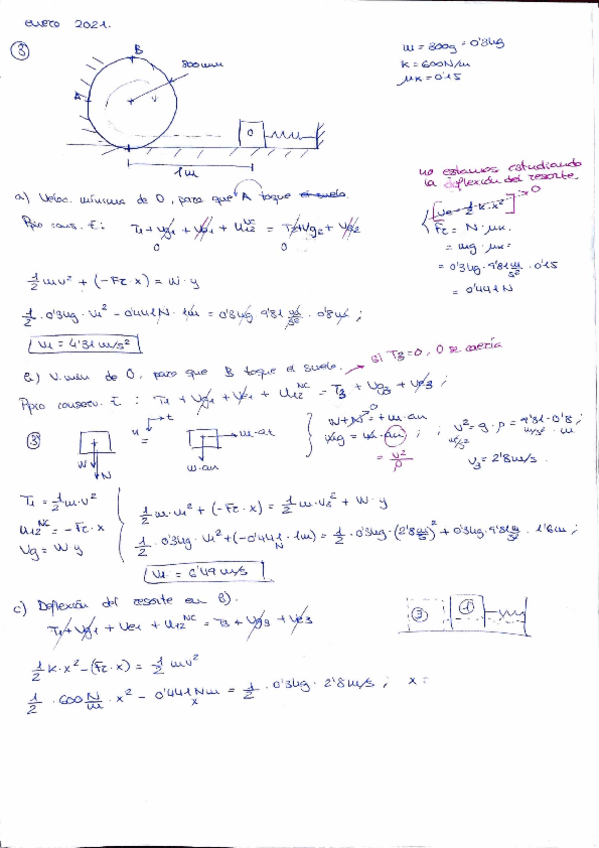 enero 2021.
③
B
800mm
A
O
1m
m = 300g = 0'3kg
k = 600N/m
μk = 0'15
a) Veloc. mínima de O, para que A toque el suelo.
Ppio cons. E: T1 + Vg1 + Ve1 + U12^NC = T2 + Vg2 + Ve2
0 0
no estamos estudiando
la deflexión del resorte.
[Ve = 1/2 · k · x²] → 0
Fr = N · μk =
= mg · μk =
= 0'3kg · 9'81 m/s² · 0'15
= 0'441N
1/2 mv² + (-Fr · x) = W · y
1/2 · 0'3kg · v1² - 0'441N · 1m = 0'3kg 9'81 m/s² · 0'8m ;
V1 = 4'31 m/s²
b) V. mín de O, para que B toque el suelo. → si T3 = 0, O se caería
Ppio conserv. E : T1 + Vg1 + Ve1 + U12^NC = T3 + Vg3 + Ve3 ;
③ W N = n t m·at m·an
W + N = + m · an
0
mg = m · an ;
= v²/ρ
v² = g · ρ = 9'81 · 0'8 ;
m²/s² m/s² · m
v3 = 2'8 m/s.
T1 = 1/2 m · v²
U12^NC = - Fr · x
Vg = W y
1/2 m · v1² + (-Fr · x) = 1/2 m · v3² + W · y
1/2 · 0'3kg · v1² + (-0'441 N · 1m) = 1/2 · 0'3kg · (2'8 m/s)² + 0'3kg · 9'81 m/s² · 1'6m ;
V1 = 6'49 m/s
c) Deflexión del resorte en b).
T1 + Vg1 + Ve1 + U12^NC = T3 + Vg3 + Ve3
③ ①
1/2 k · x² - (Fr · x) = 1/2 mv²
1/2 · 600 N/m · x² - 0'441 Nm = 1/2 · 0'3kg · 2'8 m/s ; x =
x